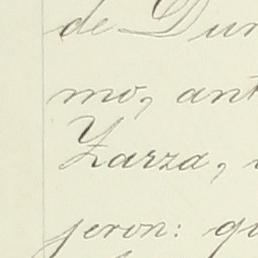 de Dur
mo, ant
Zarza,
jeron: qu